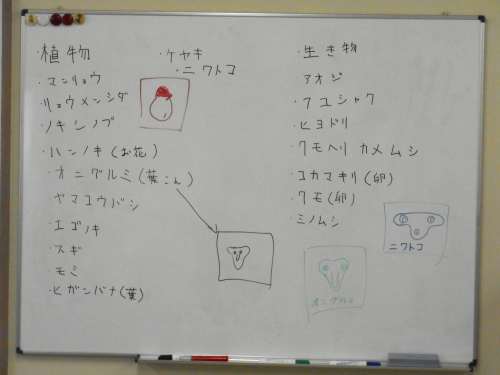 ・植物
・マンリョウ
・リョウメンシダ
・ノキシノブ
・ハンノキ(お花)
・オニグルミ(葉こん)
ヤマコウバシ
・エゴノキ
・スギ
・モミ
・ヒガンバナ(葉)
・ケヤキ
・ニワトコ
・生き物
アオジ
・フユシャク
・ヒヨドリ
・クモヘリカメムシ
・コカマキリ(卵)
・クモ(卵)
・ミノムシ
ニワトコ
オニグルミ